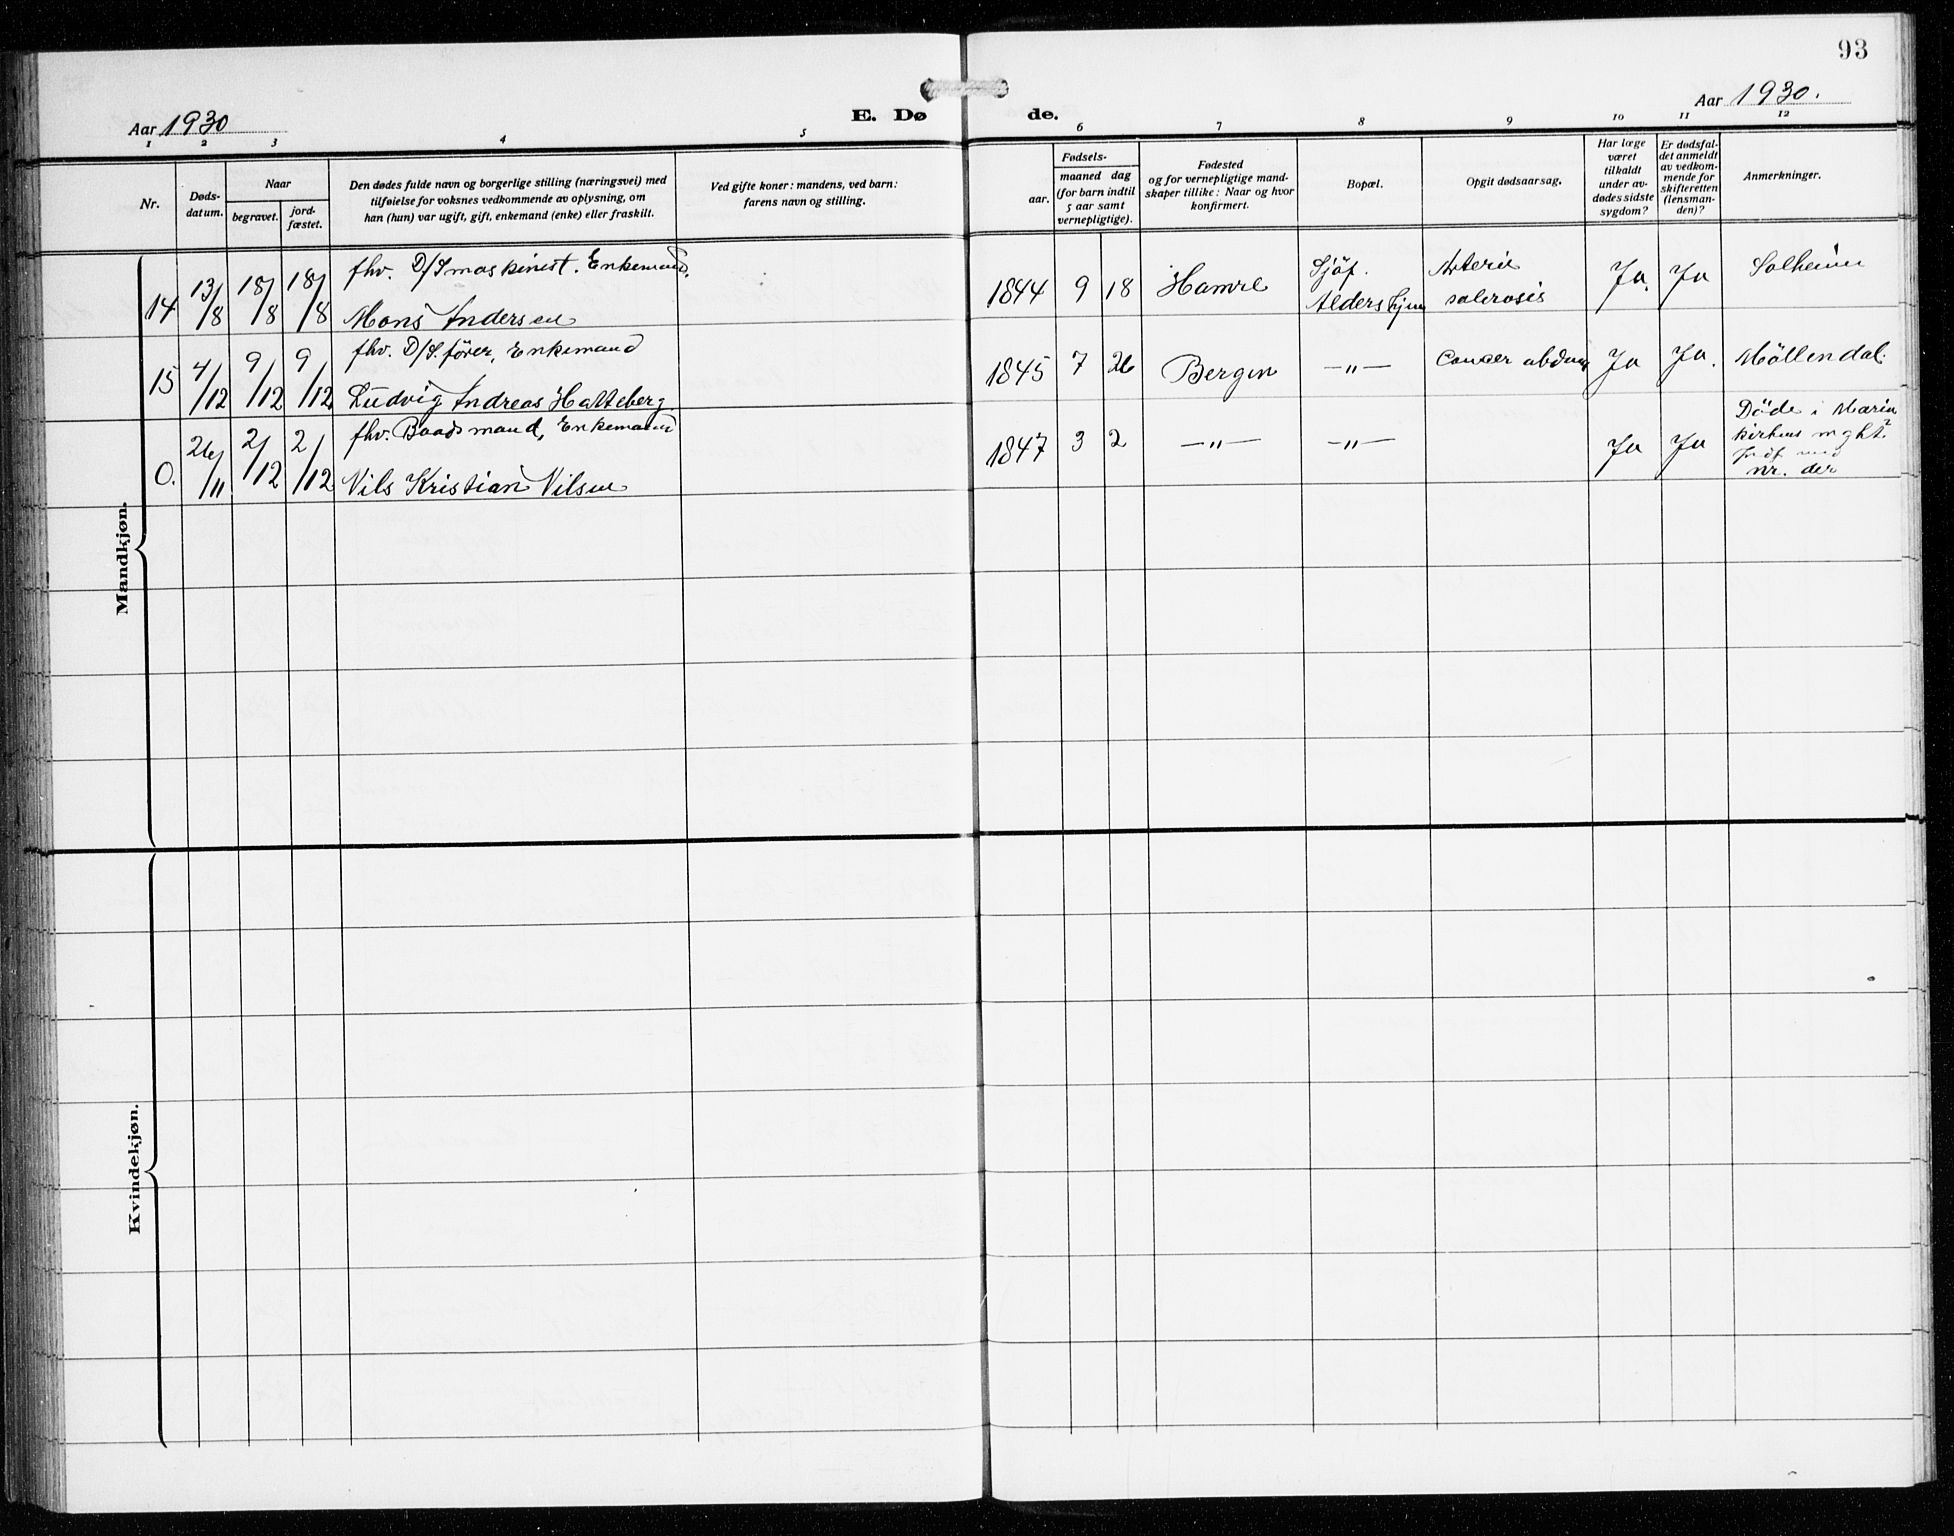 93
Aar 1930
E. Dø
de.
Aar 1930.
1 2 3 4 5 6 7 8 9 10 11 12
Nr.
Døds-
datum.
Naar
begravet.
jord-
fæstet.
Den dødes fulde navn og borgerlige stilling (næringsvei) med
tilføielse for voksnes vedkommende av oplysning, om
han (hun) var ugift, gift, enkemand (enke) eller fraskilt.
Ved gifte koner: mandens, ved barn:
farens navn og stilling.
Fødsels-
aar.
maaned dag
(for barn indtil
5 aar samt
vernepligtige).
Fødested
og for vernepligtige mand-
skaper tillike: Naar og hvor
konfirmert.
Bopæl.
Opgit dødsaarsag.
Har læge
været
tilkaldt
under av-
dødes sidste
sygdom?
Er dødsfal-
det anmeldt
av vedkom-
mende for
skifteretten
(lensman-
den)?
Anmerkninger.
Mandkjøn.
14 13/8 18/8 18/8
fhv. D/S maskinist. Enkemand.
Mons Andersen
1844 9 18 Hamre
Sjöf.
Aldershjem
Arterie
sclerosis
Ja. Ja Solheim
15 4/12 9/12 9/12
fhv. D/S. fører, Enkemand
Ludvig Andreas Hatteberg.
1845 7 26 Bergen —"— Cancer abdom Ja Ja. Möllendal.
0. 26/11 2/12 2/12
fhv. Baadsmand, Enkemand
Nils Kristian Nilsen
1847 3 2 —"— —"— Ja Ja
Döde i Marie
kirkens mght?
nr. der
Kvindekjøn.